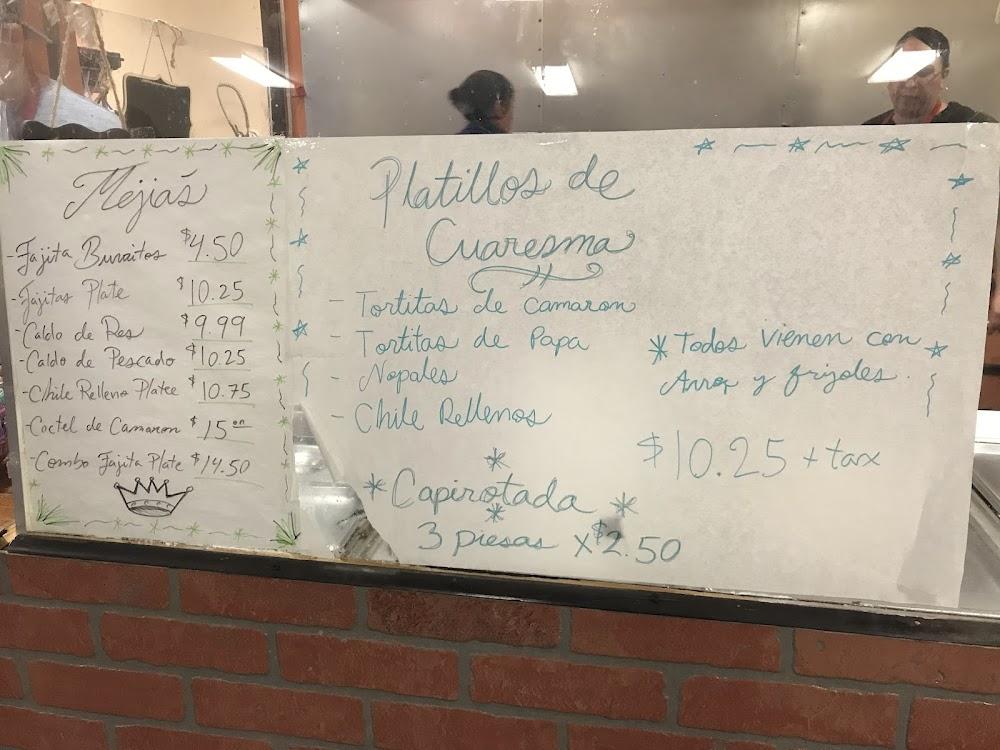 Mejia's
- Fajita Burritos $4.50
- Fajitas Plate $10.25
- Caldo de Res $9.99
- Caldo de Pescado $10.25
- Chile Relleno Platee $10.75
- Coctel de Camaron $15 00
- Combo Fajita Plate $14.50
Platillos de
Cuaresma
- Tortitas de camaron
- Tortitas de Papa
- Nopales
- Chile Rellenos
* Todos vienen con
Arroz y frijoles.
$10.25 + tax
* Capirotada *
3 piesas x $2.50